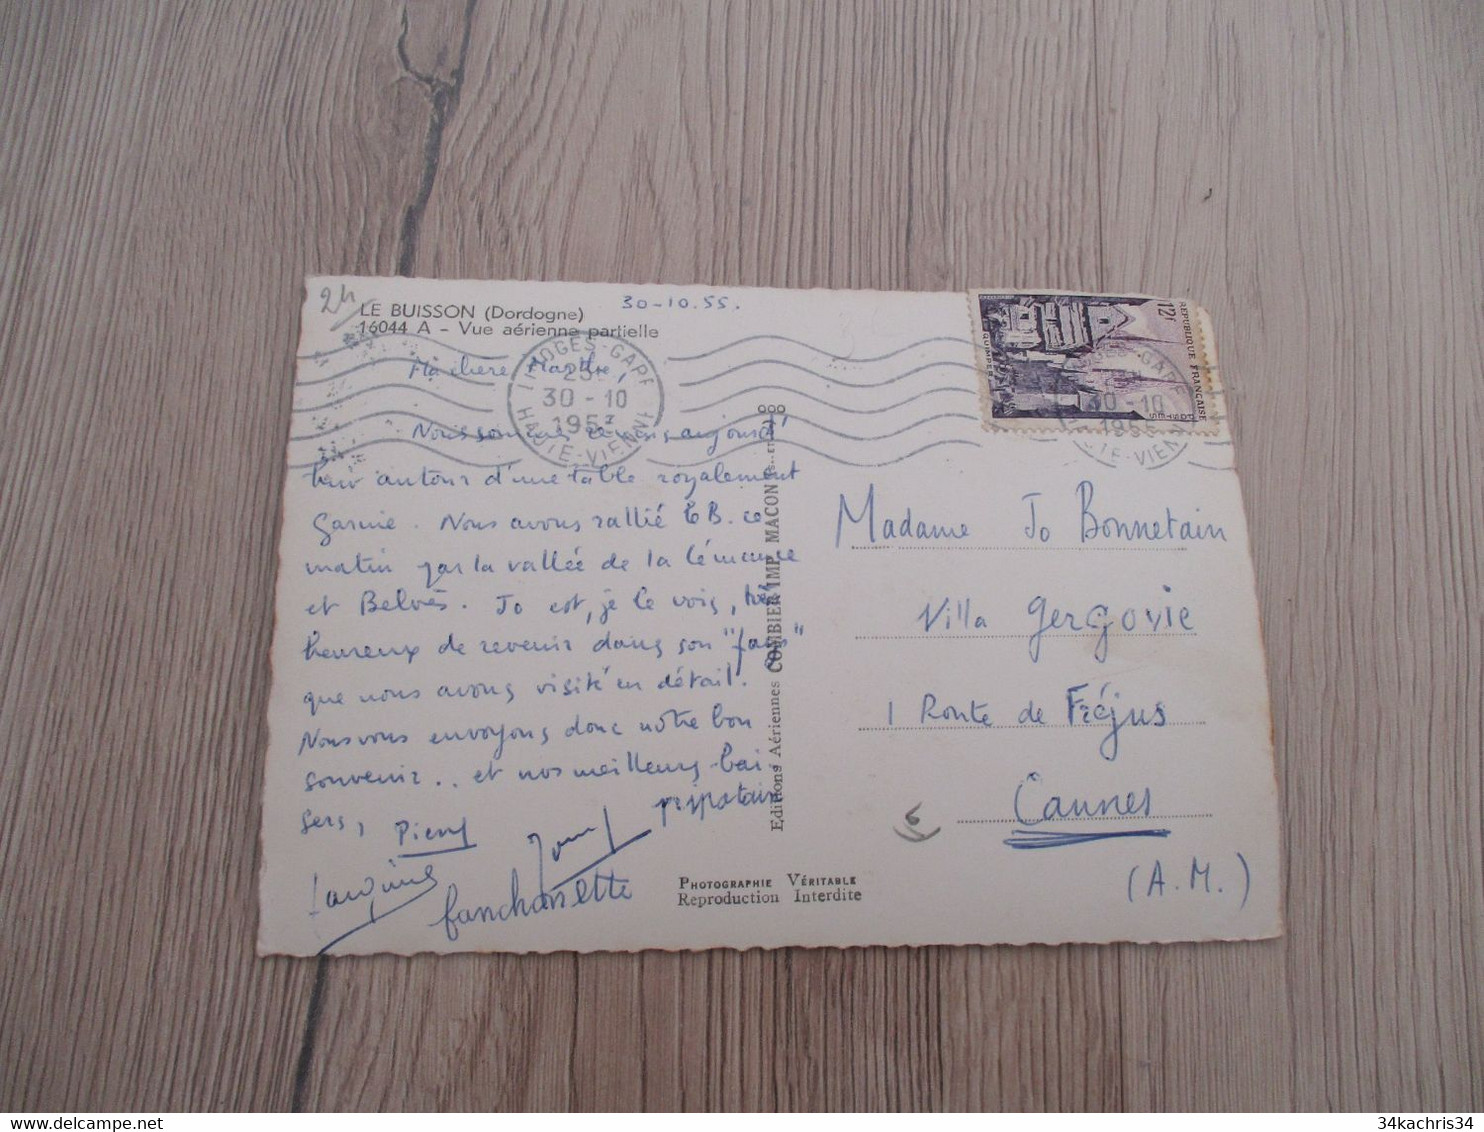 24
LE BUISSON (Dordogne)
16044 A - Vue aérienne partielle
30-10.55.
LIMOGES-GARE
30-10
HAUTE-VIENNE
12F
REPUBLIQUE FRANÇAISE
QUIMPER
POSTES
Ma chère Marthe,
Nous sommes réunis aujourd'
hui autour d'une table royalement
garnie. Nous avons rallié le B. ce
matin par la vallée de la Lémance
et Belvès. Jo est, je le vois, très
heureux de revenir dans son "pays"
que nous avons visité en détail.
Nous vous envoyons donc notre bon
souvenir.. et nos meilleurs bai-
sers,
Pierre
Jacqueline
fanchonette
Editions Aériennes COMBIER IMP. MACON
PHOTOGRAPHIE VÉRITABLE
Reproduction Interdite
Madame Jo Bonnetain
Villa Gergovie
1 Route de Fréjus
6
Cannes
(A.M.)
34kachris34 34kachris34